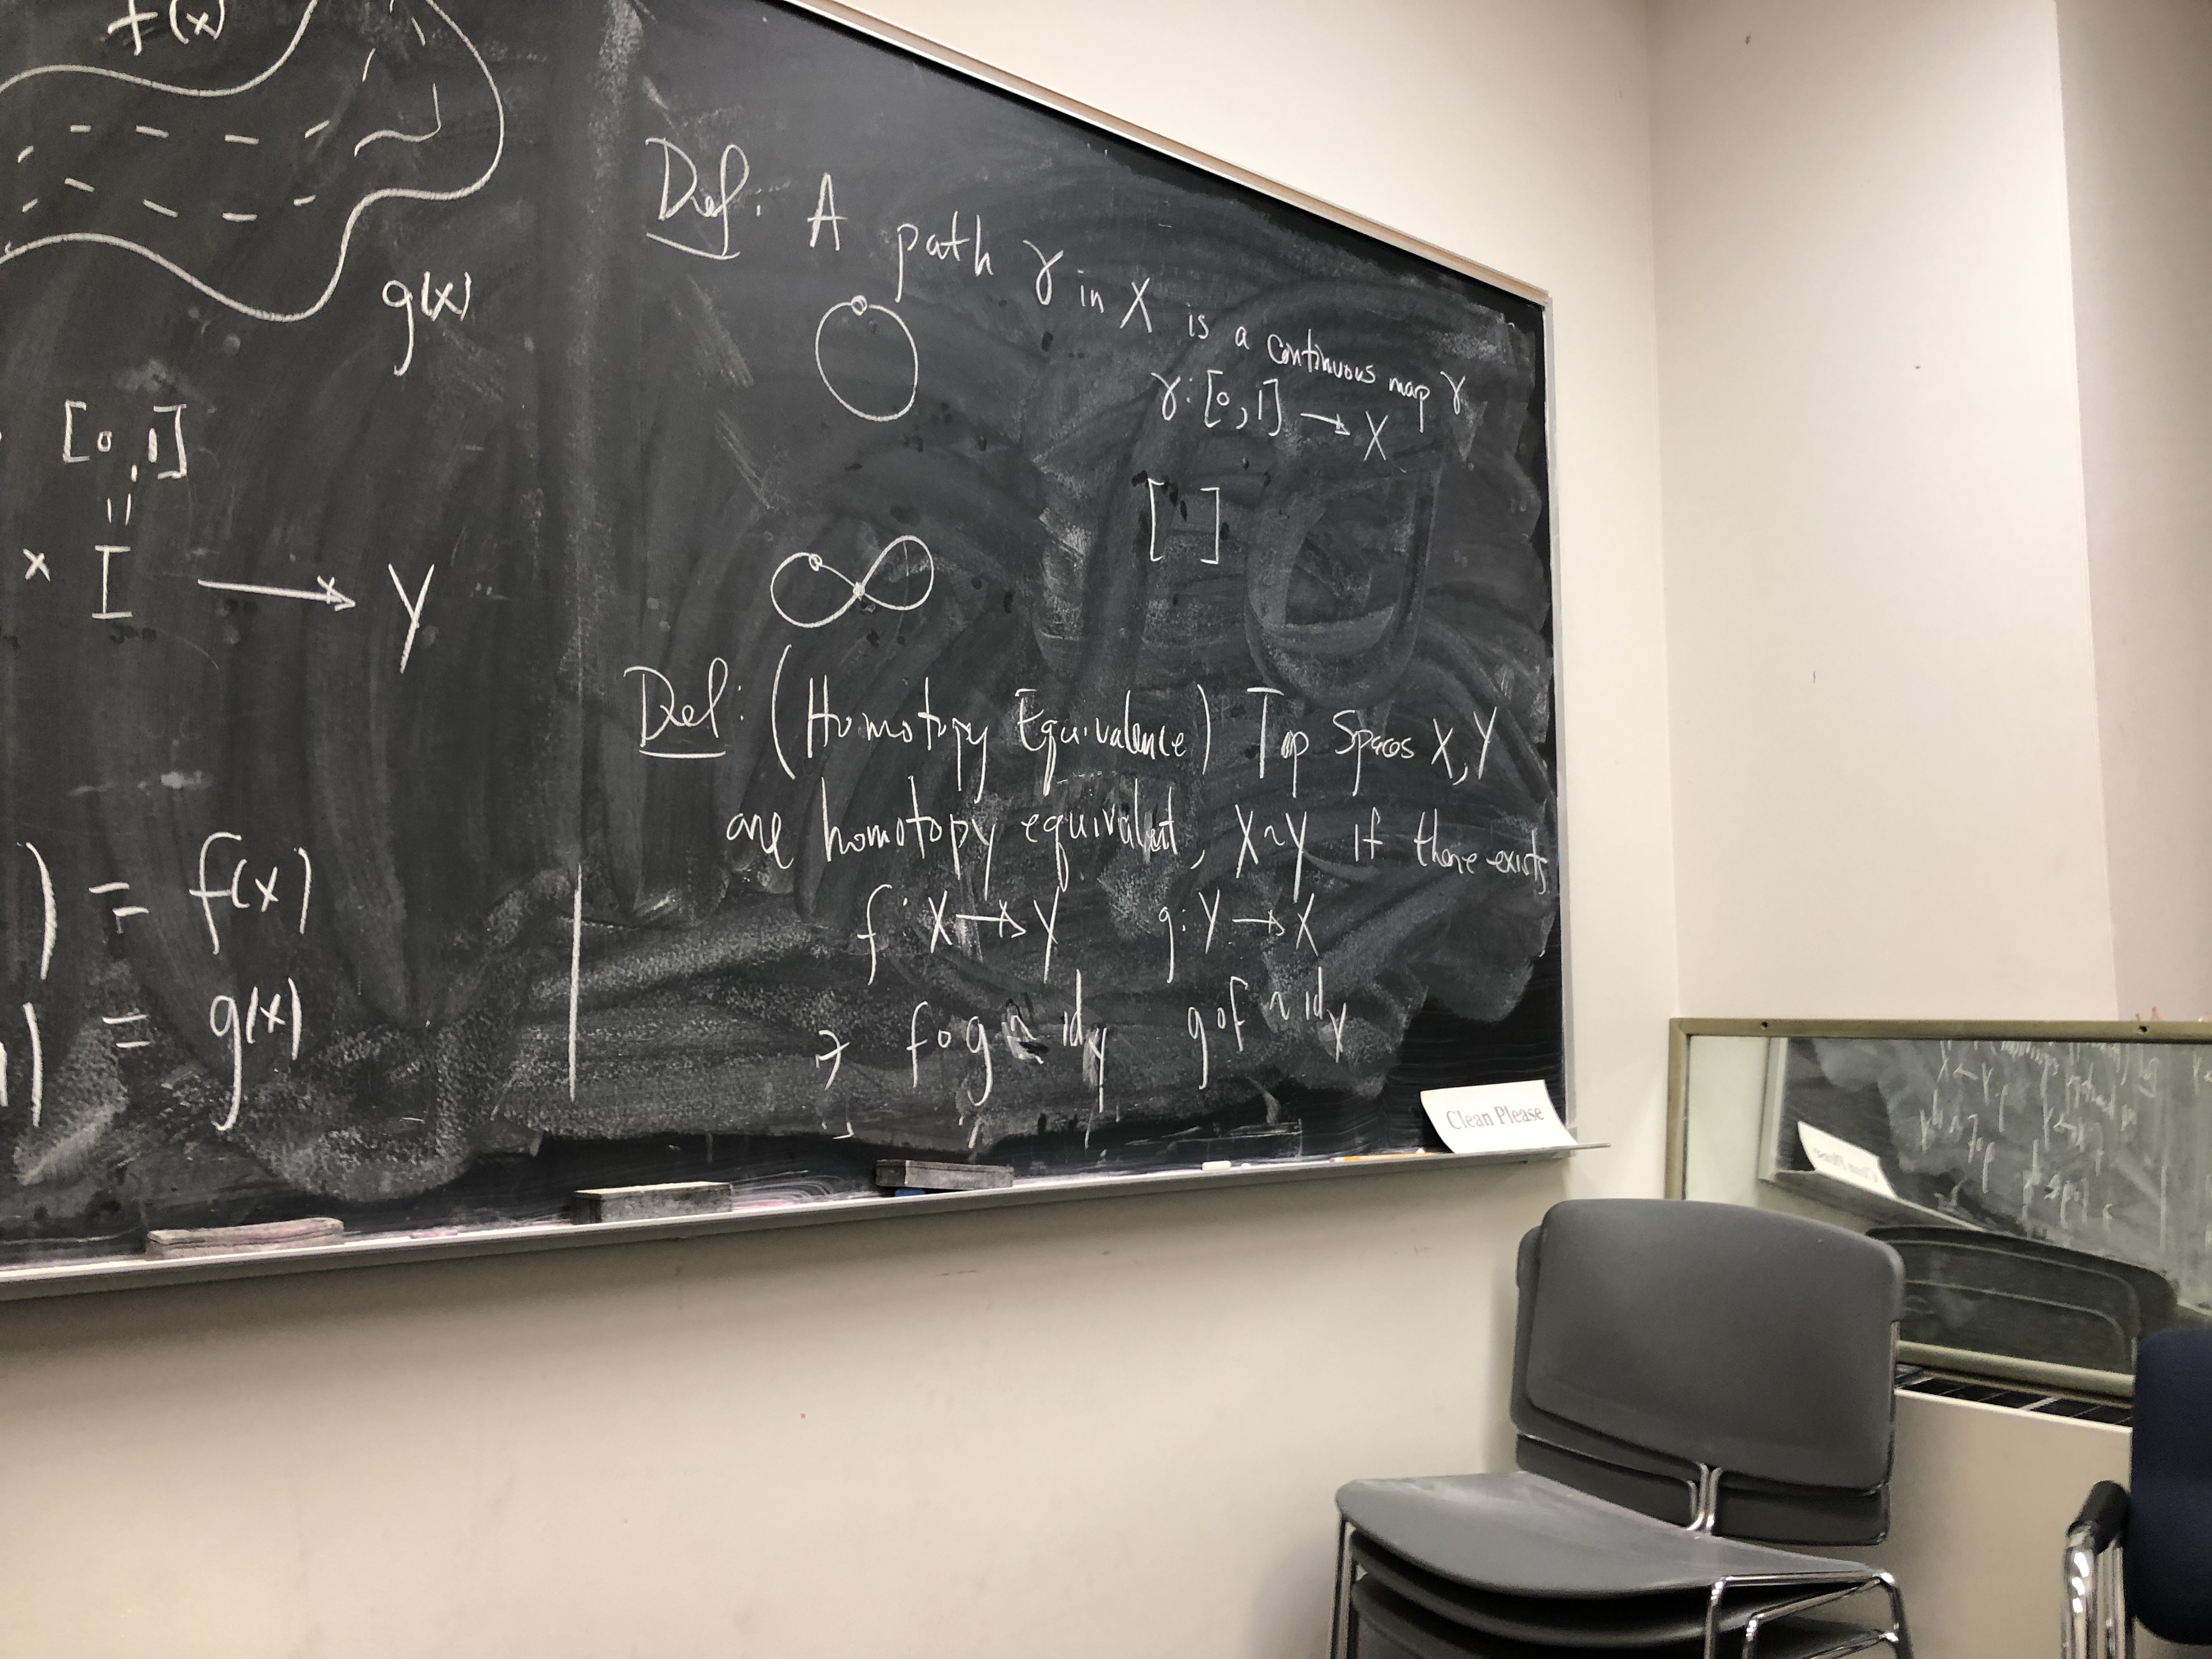 f(x)
g(x)
[0,1]
=
× I → Y
) = f(x)
) = g(x)
Def: A path γ in X is a continuous map γ
γ: [0,1] → X
[ ]
Def: (Homotopy Equivalence) Top Spaces X, Y
are homotopy equivalent, X ~ Y if there exists
f: X → Y g: Y → X
∋ f∘g ~ id_Y g∘f ~ id_Y
Clean Please